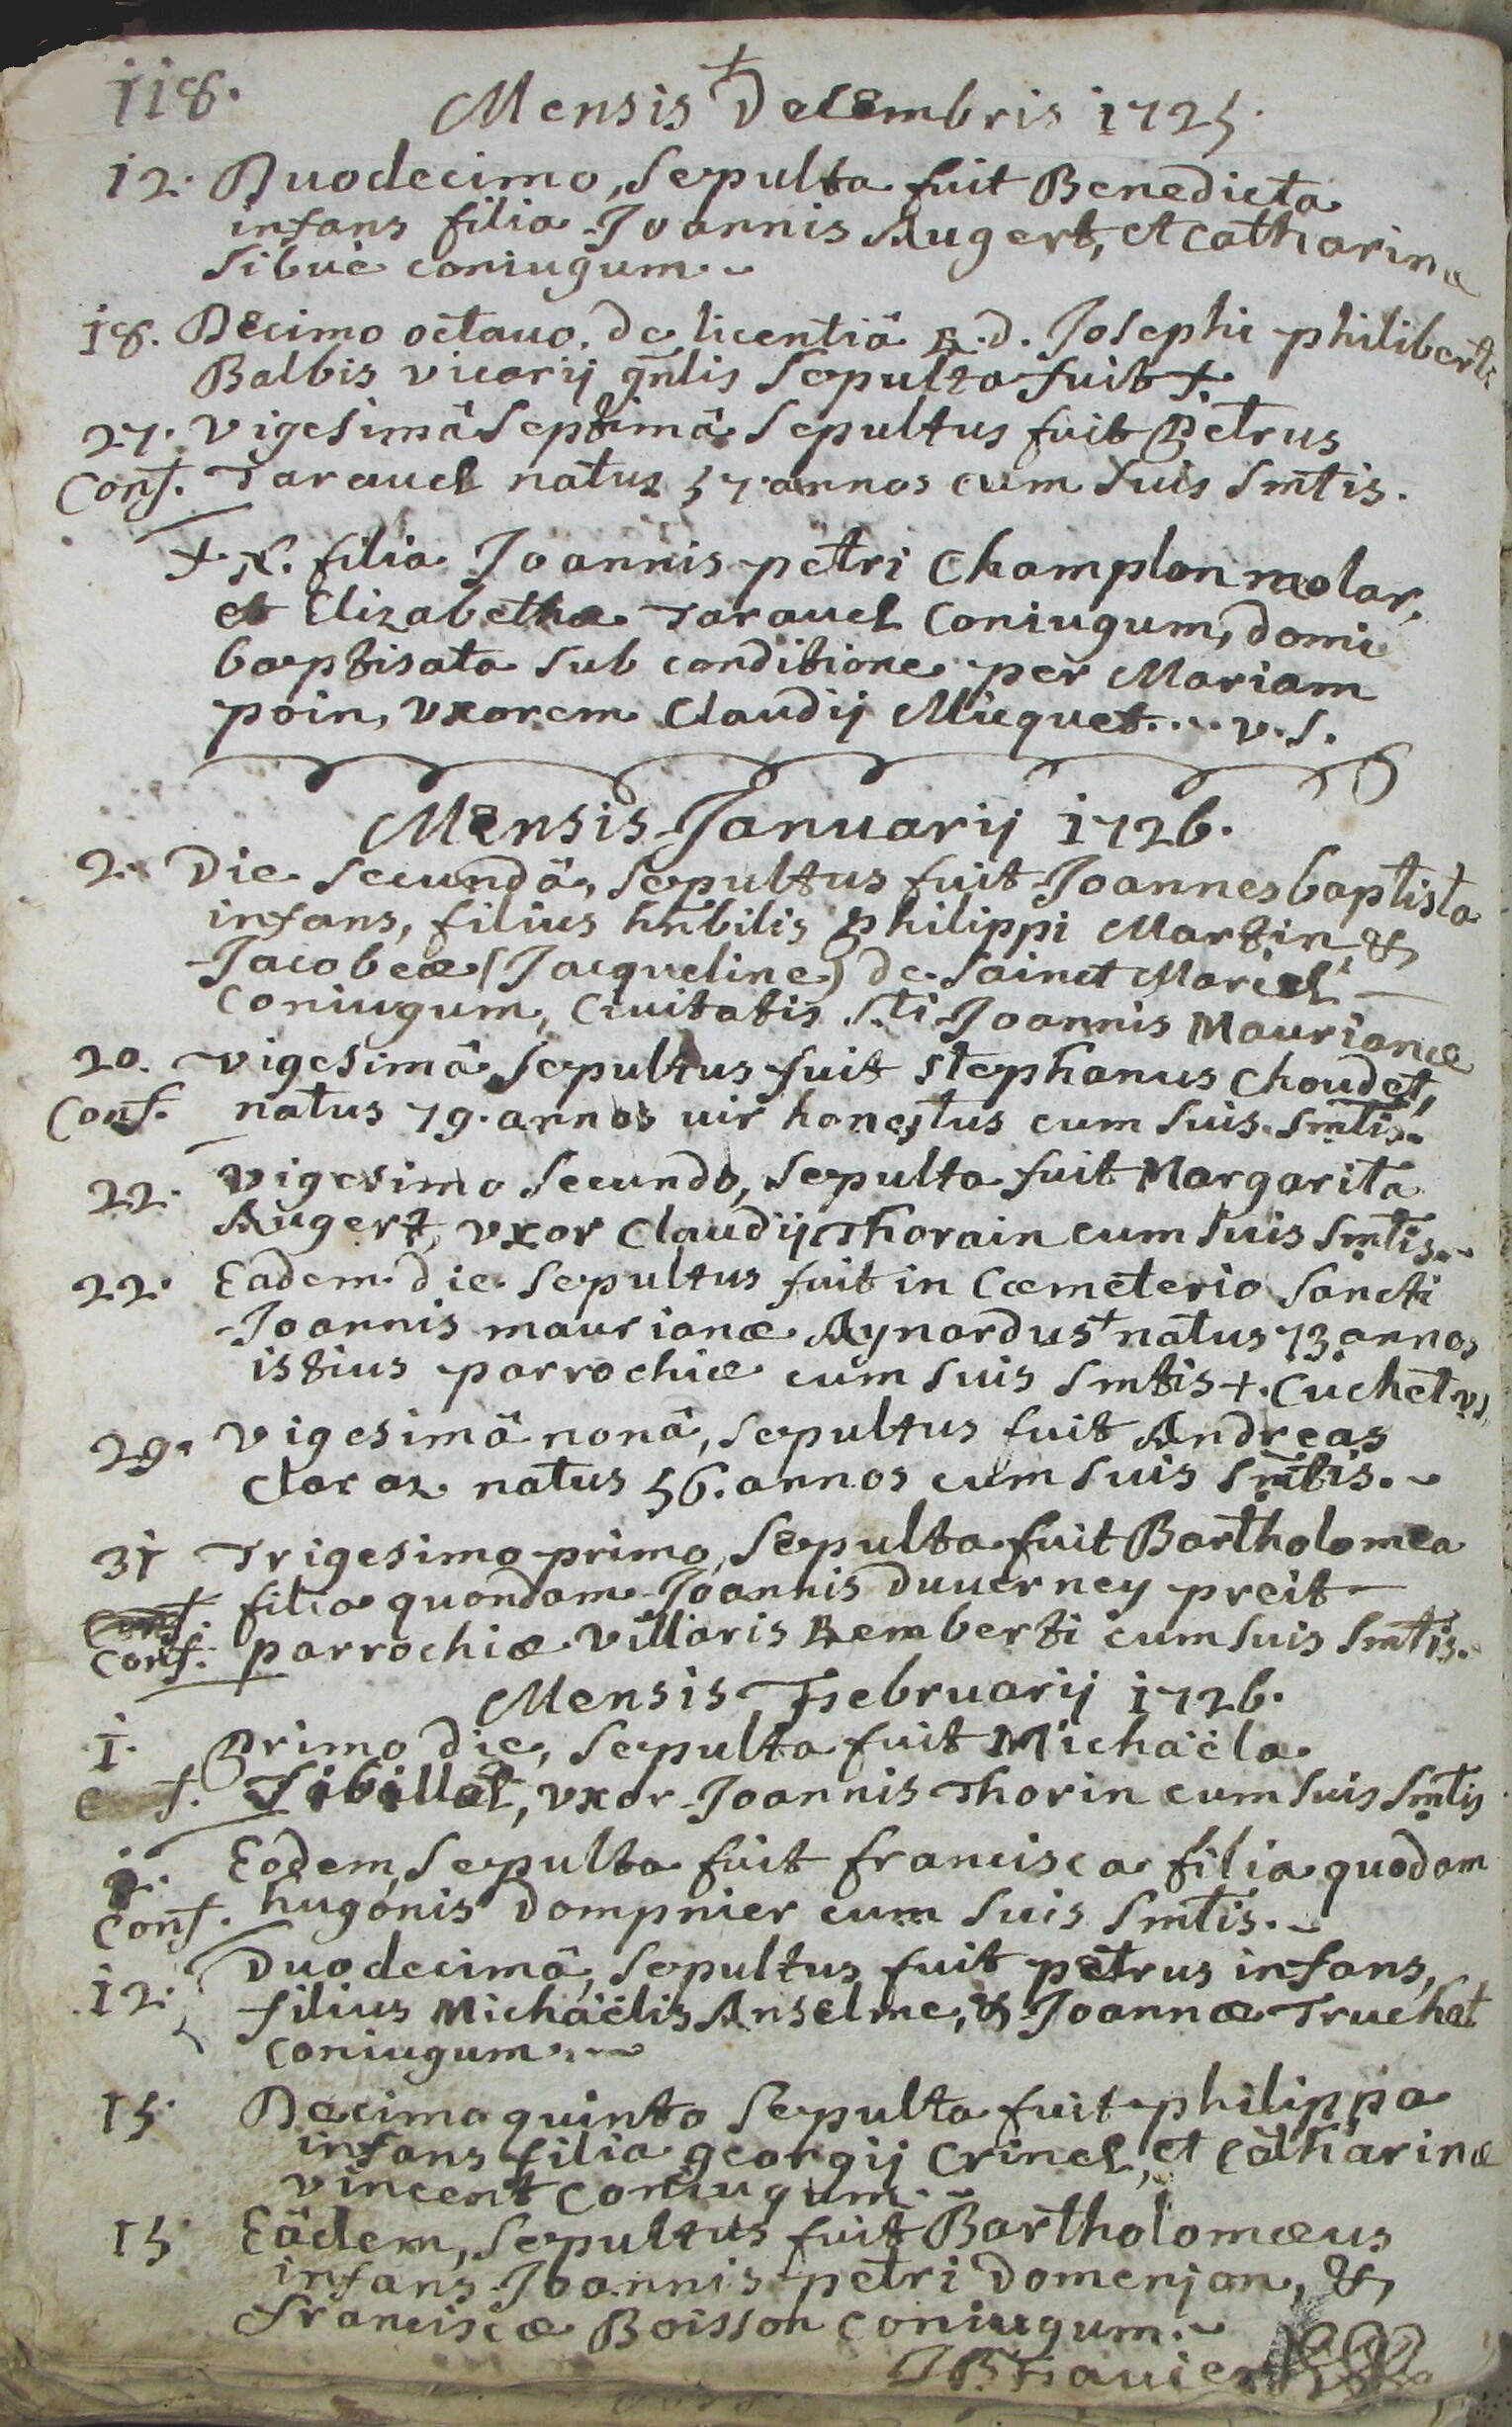 118.
+
Mensis Decembris 1725.
12. Duodecimo, sepulta fuit Benedicta
infans filia Joannis Augert, et Catharinæ
Sibué coniugum.
18. Decimo octavo, de licentiâ R.d. Josephi philiberti
Balbis vicarij gnlis sepulta fuit +.
27. Vigesimâ septimâ sepultus fuit Petrus
Conf. Taravel natus 57 annos cum suis smtis.
+. N. filia Joannis petri Champlon molar,
et Elizabethæ Taravel Coniugum, domi
baptisata sub conditione per Mariam
poin, uxorem Claudij Micquet.... v.s.
Mensis Januarij 1726.
2. Die secundâ, sepultus fuit Joannes baptista
infans, filius hnbilis philippi Martin, &
Jacobeæ (Jacqueline) de Sainct Marcel
Coniugum, Civitatis Sti Joannis Maurianæ
20. Vigesimâ, sepultus fuit Stephanus Choudet,
Conf. natus 79. annos vir honestus cum suis smtis.
22. Vigesimo secundo, sepulta fuit Margarita
Augert, uxor Claudij Thorain cum suis smtis.
22. Eadem die sepultus fuit in Cæmeterio Sancti
Joannis maurianæ Aynardus + natus 73 annos
istius parrochiæ cum suis smtis +. Cuchetus
29. Vigesimâ nonâ, sepultus fuit Andreas
Claraz natus 56. annos cum suis smtis.
31 Trigesimo primo, sepulta fuit Bartholomea
filia quondam Joannis duverney preit
Conf. parrochiæ Villaris Remberti cum suis smtis.
Mensis Februarij 1726.
1. Primo die, sepulta fuit Michaëla
Sibillat, uxor Joannis Thorin cum suis smtis
1. Eodem, sepulta fuit francisca filia quodam
Conf. hugonis Dompnier cum suis smtis.
12. Duodecimâ, sepultus fuit petrus infans,
filius Michaëlis Anselme, & Joannæ Truchet
coniugum.
15. Decimo quinto sepulta fuit philippa
infans filia georgij Crinel, et Catharinæ
vincent coniugum.
15 Eâdem, sepultus fuit Bartholomæus
infans Joannis petri Domenjon, &
franciscæ Boisson coniugum.